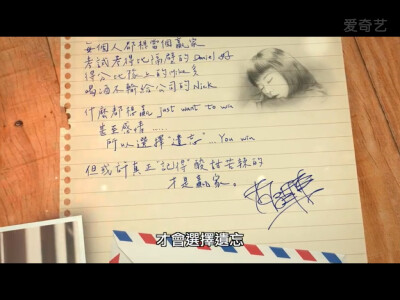 爱奇艺
每個人都想當個贏家
考試考得比隔壁的Daniel好
得分比隊上的Mike多
喝酒不輸給公司的Nick
什麼都想贏 just want to win
甚至感情......
所以選擇"遺忘". You win
但或許真正"記得"酸甜苦辣的
才是贏家。
才會選擇遺忘